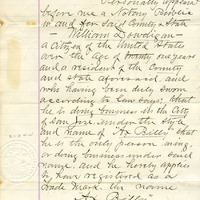 Personally appeared
before me a Notary Public
in and for said County & State
William Dondigan
a citizen of the United States
over the age of twenty one years
and a resident of the County
and State aforesaid, and
who having been duly sworn
according to law says: that
he is doing business in the City
of San Jose under the style
and name of "Ax Billy" that
he is the only person using
or doing business under said
name and he hereby applies
to have registered as a
trade mark the name
"Ax Billy"